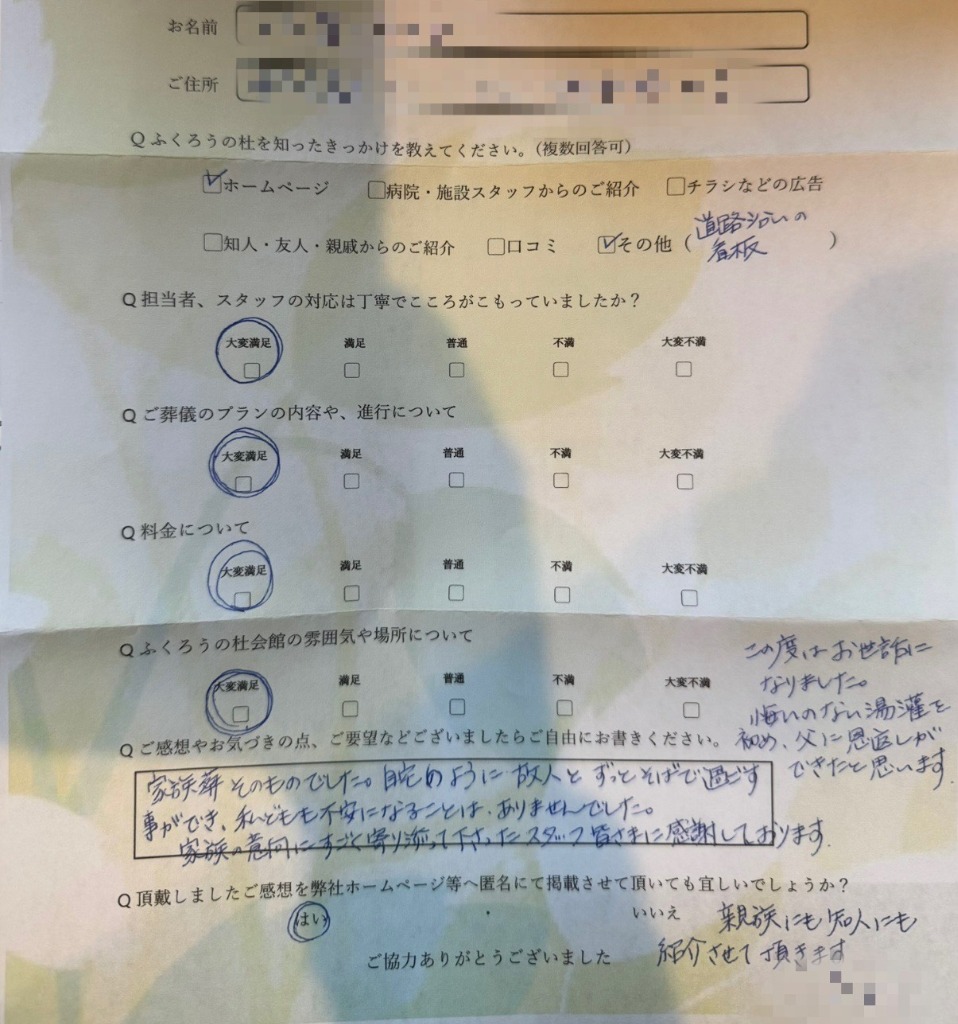 お名前
ご住所
Q ふくろうの杜を知ったきっかけを教えてください。(複数回答可)
ホームページ 病院・施設スタッフからのご紹介 チラシなどの広告
知人・友人・親戚からのご紹介 口コミ その他(道路沿いの
看板)
Q 担当者、スタッフの対応は丁寧でこころがこもっていましたか?
大変満足 満足 普通 不満 大変不満
Q ご葬儀のプランの内容や、進行について
大変満足 満足 普通 不満 大変不満
Q 料金について
大変満足 満足 普通 不満 大変不満
Q ふくろうの杜会館の雰囲気や場所について
大変満足 満足 普通 不満 大変不満
Q ご感想やお気づきの点、ご要望などございましたらご自由にお書きください。
家族葬そのものでした。自宅のように故人とずっとそばで過ごす
事ができ、私どもも不安になることは、ありませんでした。
家族の意向にすごく寄り添って下さったスタッフ皆さまに感謝しております.
この度はお世話に
なりました。
悔いのない湯灌を
初め、父に恩返しが
できたと思います.
Q 頂戴しましたご感想を弊社ホームページ等へ匿名にて掲載させて頂いても宜しいでしょうか?
はい いいえ
親族にも知人にも
紹介させて頂きます
ご協力ありがとうございました